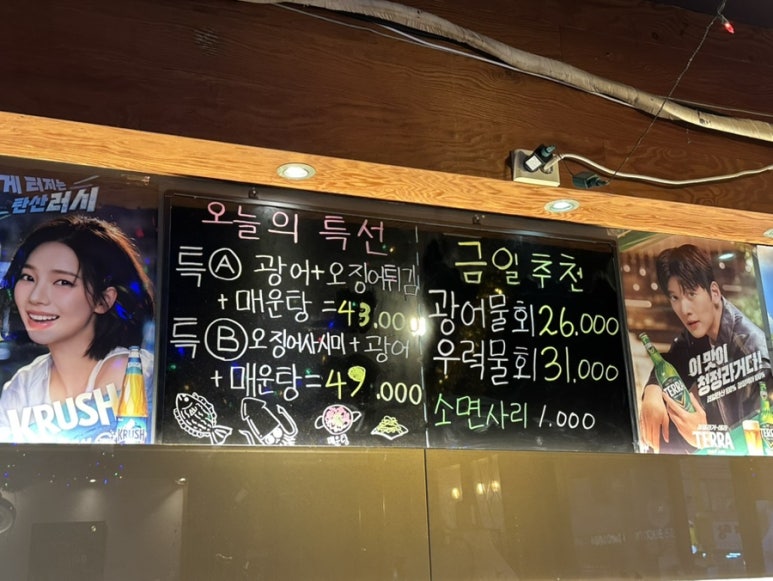 게 터지는
탄산러시
KRUSH
KRUSH
오늘의 특선
특Ⓐ 광어+오징어튀김
+매운탕 =43.000
특Ⓑ 오징어사시미+광어
+매운탕=49.000
매운탕
금일추천
광어물회 26.000
우럭물회 31.000
소면사리 1.000
이 맛이
청정라거다!
TERRA
TERRA